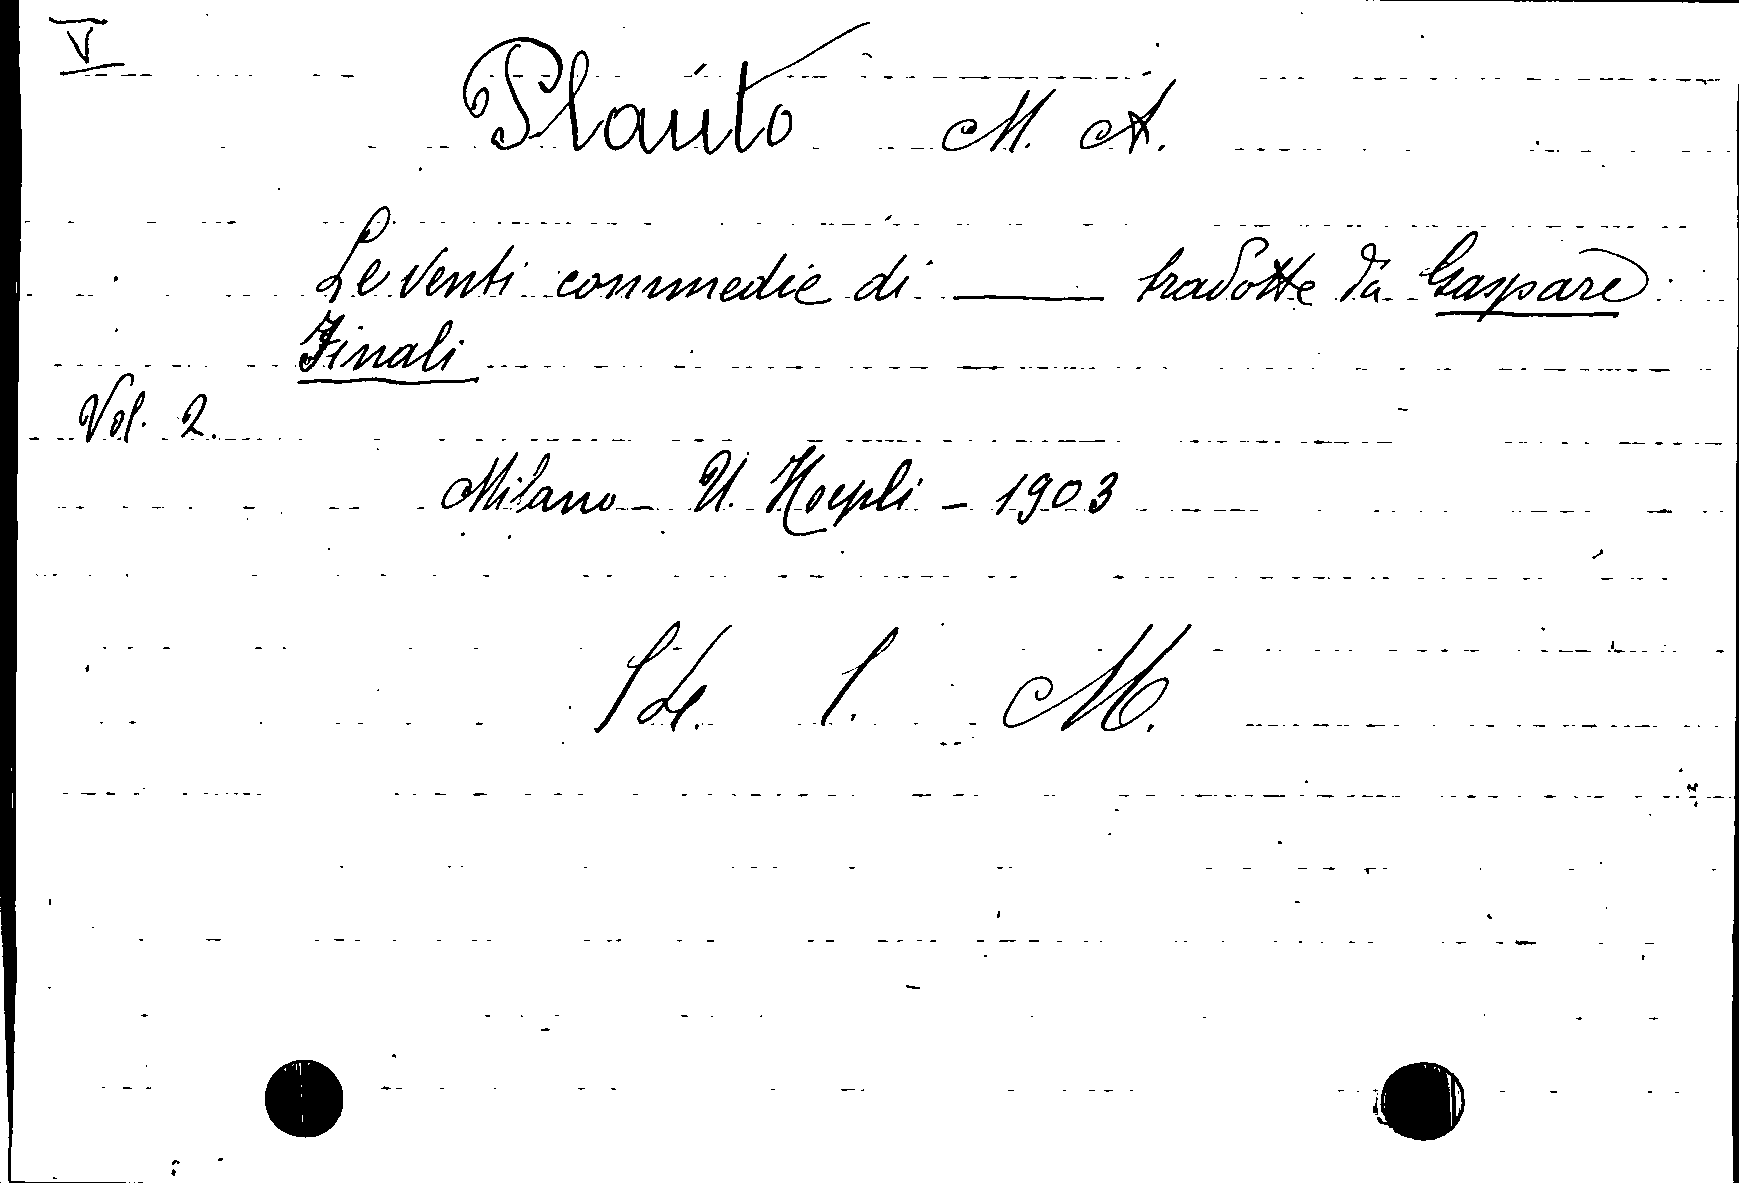 V
Plauto M. A.
Le venti commedie di ____ tradotte da Gaspare
Finali
Vol. 2.
Milano - U. Hoepli - 1903
M.